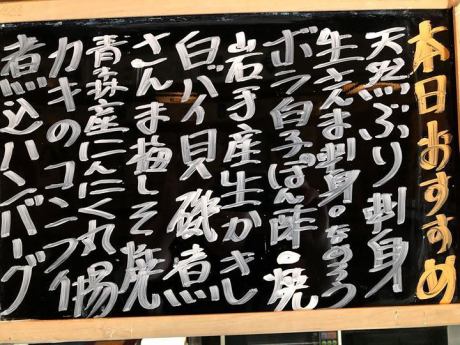 本日おすすめ
天然ぶり刺身
生さんま刺身。なめろう
ボラ白子ぽん酢。焼
岩手産生かき
白バイ貝磯煮
さんま梅しそ焼
青森産にんにく丸揚
カキのコンフィ
煮込ハンバーグ